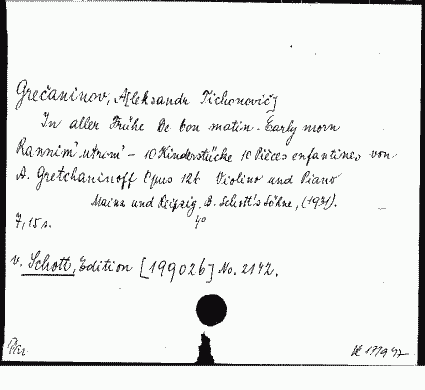 Grečaninov, A[leksandr Tichonovič]
In aller Frühe De bon matin - Early morn
Rannim utrom - 10 Kinderstücke 10 Pièces enfantines von
A. Gretchaninoff Opus 126 Violino und Piano
Mainz und Leipzig. B. Schott's Söhne, (1931).
7, 15 s. 4°
v. Schott, Edition [19902b] No. 2142.